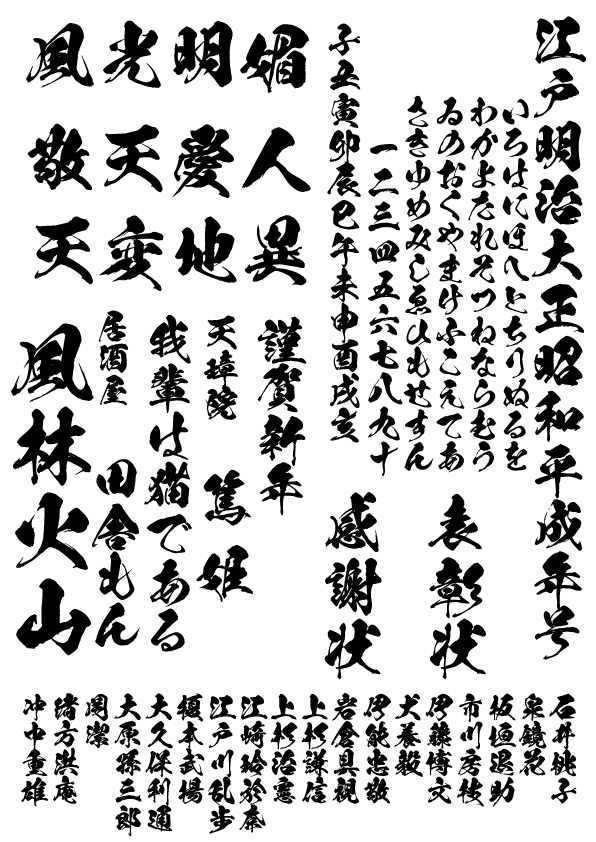 江戸明治大正昭和平成年号
いろはにほへとちりぬるを
わがよたれそつねならむう
ゐのおくやまけふこえてあ
さきゆめみしゑひもせすん
一二三四五六七八九十
子丑寅卯辰巳午未申酉戌亥
表彰状
感謝状
風光明媚
敬天愛人
天変地異
謹賀新年
天璋院 篤姫
我輩は猫である
居酒屋 田舎もん
風林火山
石井桃子
泉鏡花
板垣退助
市川房枝
伊藤博文
犬養毅
伊能忠敬
岩倉具視
上杉謙信
上杉治憲
江崎玲於奈
江戸川乱歩
榎本武揚
大久保利通
大原孫三郎
岡潔
緒方洪庵
沖中重雄